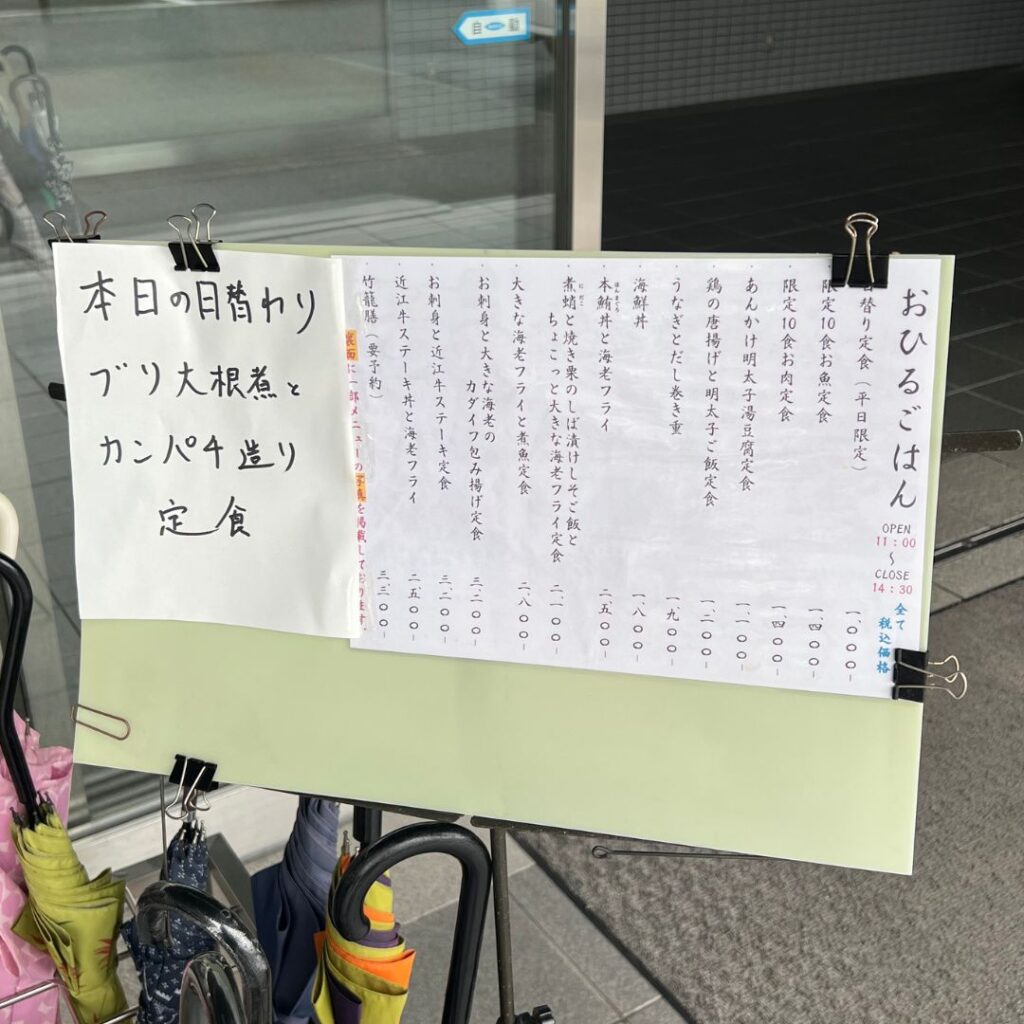 自動
おひるごはん
OPEN
11:00
~
CLOSE
14:30
全て
税込価格
替り定食(平日限定) 一、〇〇〇-
限定10食お魚定食 一、四〇〇-
限定10食お肉定食 一、四〇〇-
あんかけ明太子湯豆腐定食 一、一〇〇-
鶏の唐揚げと明太子ご飯定食 一、二〇〇-
うなぎとだし巻き重 一、九〇〇-
海鮮丼 一、八〇〇-
本鮪丼と海老フライ 二、五〇〇-
煮蛸と焼き栗のしば漬けしそご飯と
ちょこっと大きな海老フライ定食 二、一〇〇-
大きな海老フライと煮魚定食 二、八〇〇-
お刺身と大きな海老の
カダイフ包み揚げ定食 三、二〇〇-
お刺身と近江牛ステーキ定食 三、二〇〇-
近江牛ステーキ丼と海老フライ 二、五〇〇-
竹籠膳(要予約) 三、三〇〇-
裏面に一部メニューの写真を掲載しております。
本日の日替わり
ブリ大根煮と
カンパチ造り
定食